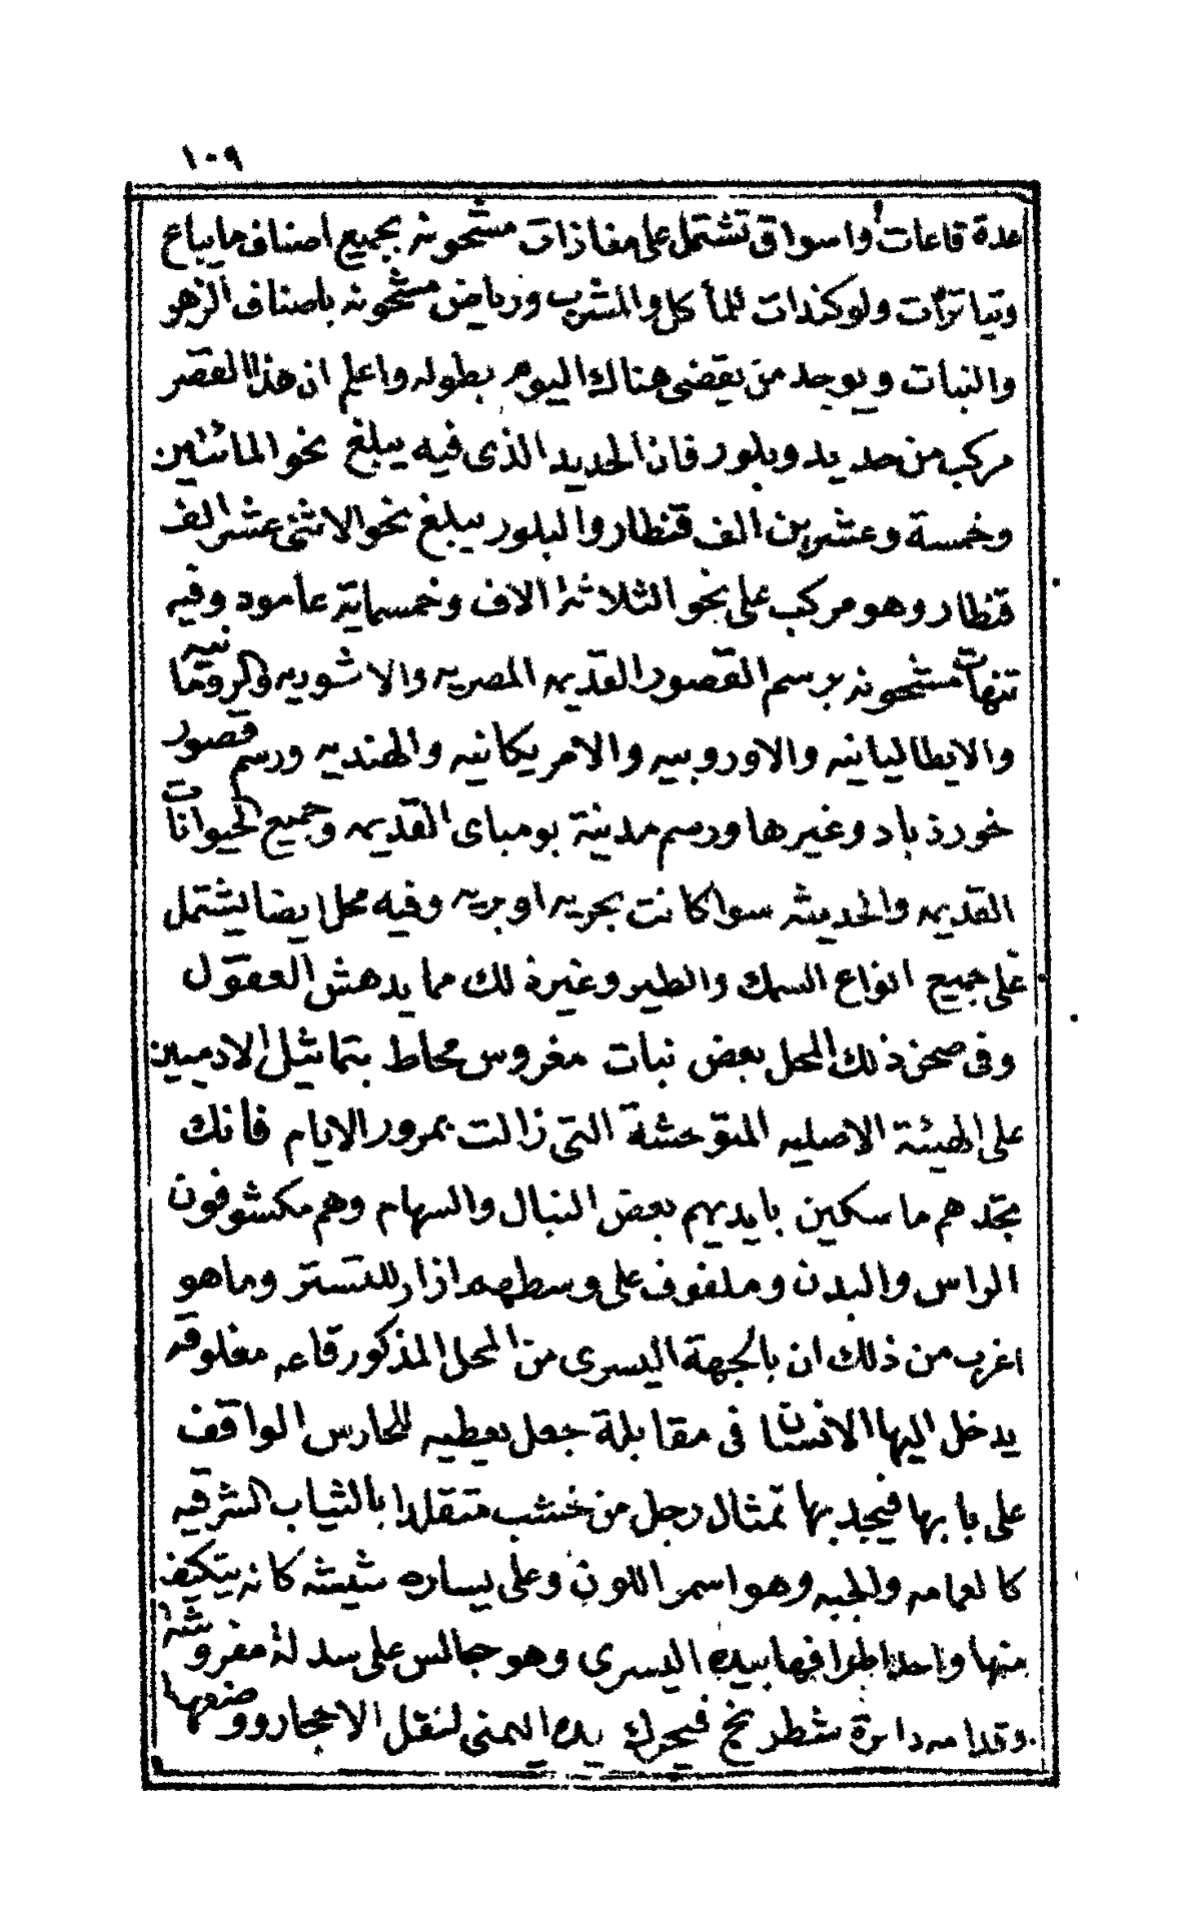 ١٠٩
عدة قاعات واسواق تشتمل على مغازات مشحونه بجميع اصناف ما يباع
وتياترأت ولوكندات للمأكل والمشرب ورياض مشحونه باصناف الزهر
والنبات ويوجد من يقضى هناك اليوم بطوله واعلم ان هذا القصر
مركب من حديد وبلور فان الحديد الذى فيه يبلغ نحو المائتين
وخمسة وعشرين الف قنطار والبلور يبلغ نحو الاثنى عشر الف
قنطار وهو مركب على نحو الثلاثة الاف وخمسماية عامود وفيه
تنهات مشحونه برسم القصور القديمه المصريه والاشوريه والرومانيه
والايطاليانيه والاوروبيه والامريكانيه والهنديه ورسم قصور
خورذباد وغيرها ورسم مدينة بومباى القديمه وجميع الحيوانات
القديمه والحديثه سوا كانت بحريه او بريه وفيه محل ايضا يشتمل
على جميع انواع السمك والطير وغير ذلك مما يدهش العقول
وفى صحن ذلك المحل بعض نبات مغروس محاط بتماثيل الادميين
على الهيئة الاصليه المتوحشة التى زالت بمرور الايام فانك
تجدهم ماسكين بايديهم بعض النبال والسهام وهم مكشوفون
الراس والبدن وملفوف على وسطهم ازار للتستر وما هو
اغرب من ذلك ان بالجهة اليسرى من المحل المذكور قاعه مغلوقه
يدخل اليها الانسان فى مقابلة جعل يعطيه للحارس الواقف
على بابها فيجد بها تمثال رجل من خشب متقلدا بالثياب الشرقيه
كالعمامه والجبه وهو اسمر اللون وعلى يساره شيشه كانه يتكيف
منها واحدا طرافها بيده اليسرى وهو جالس على سدلة مفروشة
وقدامه دائرة شطرنج فيحرك يده اليمنى لنقل الاحجار ووضعها